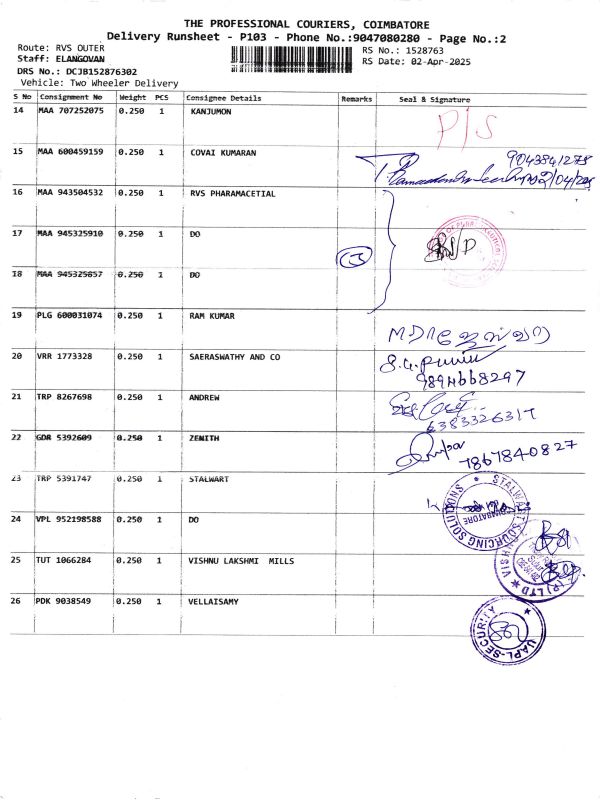 THE PROFESSIONAL COURIERS, COIMBATORE
Delivery Runsheet - P103 - Phone No.:9047080280 - Page No.:2
Route: RVS OUTER
RS No.: 1528763
Staff: ELANGOVAN
RS Date: 02-Apr-2025
DRS No.: DCJB152876302
Vehicle: Two Wheeler Delivery
S No Consignment No Weight PCS Consignee Details Remarks Seal & Signature
14 MAA 707252075 0.250 1 KANJUMON P/S
15 MAA 600459159 0.250 1 COVAI KUMARAN
16 MAA 943504532 0.250 1 RVS PHARAMACETIAL
17 MAA 945325910 0.250 1 DO
18 MAA 945325857 0.250 1 DO
19 PLG 600031074 0.250 1 RAM KUMAR
20 VRR 1773328 0.250 1 SAERASWATHY AND CO
9894668297
21 TRP 8267698 0.250 1 ANDREW
6383326317
22 GDR 5392609 0.250 1 ZENITH
7867840827
23 TRP 5391747 0.250 1 STALWART
STALWART SOURCING SOLUTIONS
COIMBATORE
24 VPL 952198588 0.250 1 DO
25 TUT 1066284 0.250 1 VISHNU LAKSHMI MILLS
26 PDK 9038549 0.250 1 VELLAISAMY
UAPL-SECURITY